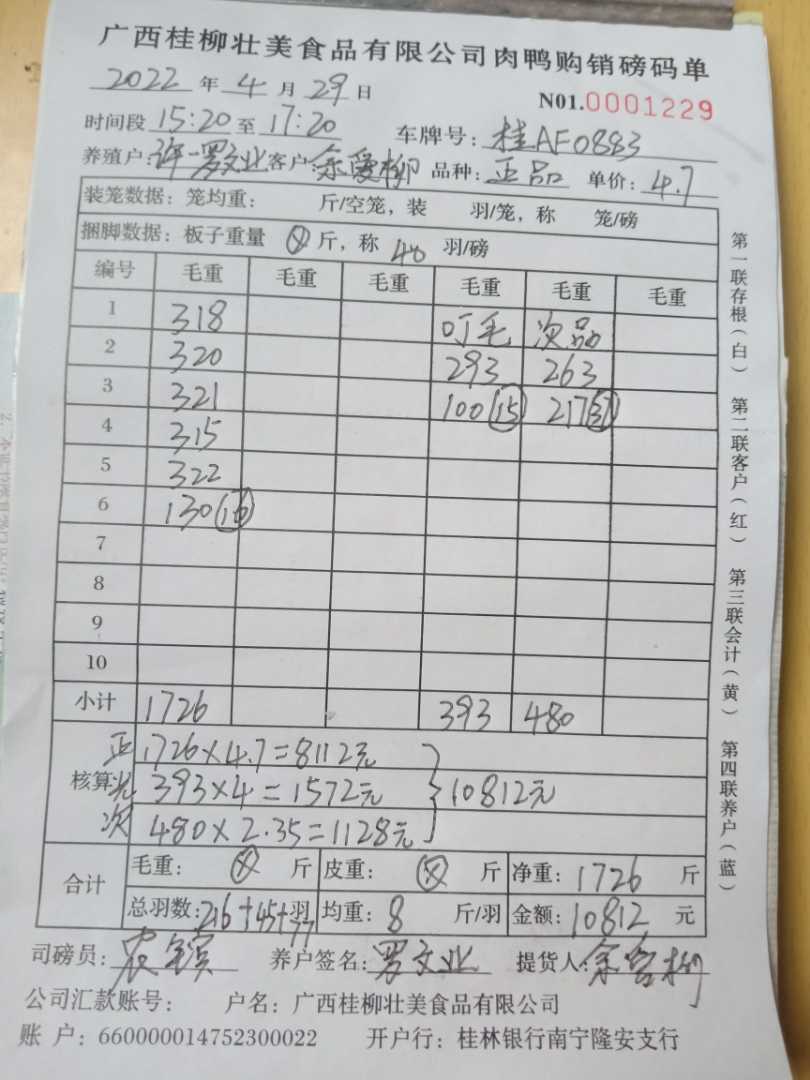 广西桂柳壮美食品有限公司肉鸭购销磅码单
2022 年 4 月 29 日
N01.0001229
时间段 15:20 至 17:20 车牌号: 桂AF0883
养殖户: 许一罗文业 客户: 余爱柳 品种: 正品 单价: 4.7
装笼数据: 笼均重: 斤/空笼, 装 羽/笼, 称 笼/磅
捆脚数据: 板子重量 ⊗ 斤, 称 40 羽/磅
编号 毛重 毛重 毛重 毛重 毛重 毛重
1 318 叮毛 次品
2 320 293 263
3 321 100(15) 217(37)
4 315
5 322
6 130(16)
7
8
9
10
小计 1726 393 480
正 1726×4.7=8112元
核算 光 393×4=1572元 10812元
次 480×2.35=1128元
合计 毛重: ⊗ 斤 皮重: ⊗ 斤 净重: 1726 斤
总羽数: 216+45+77 羽 均重: 8 斤/羽 金额: 10812 元
司磅员: 农 养户签名: 罗文业 提货人: 余爱柳
公司汇款账号: 户名: 广西桂柳壮美食品有限公司
账 户: 660000014752300022 开户行: 桂林银行南宁隆安支行
第一联存根(白) 第二联客户(红) 第三联会计(黄) 第四联养户(蓝)